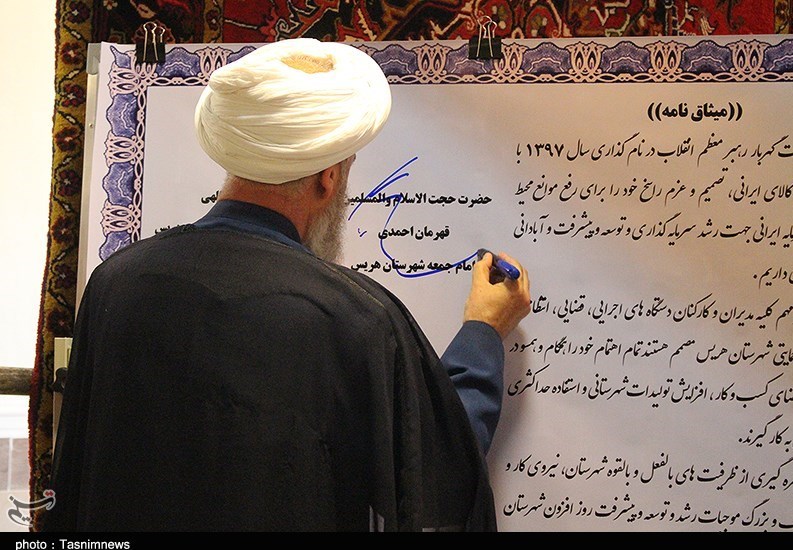 ((میثاق نامه))
ت گهربار رهبر معظم انقلاب در نام گذاری سال ۱۳۹۷ با
کالای ایرانی، تصمیم و عزم راسخ خود را برای رفع موانع محیط
ایه ایرانی جهت رشد سرمایه گذاری و توسعه و پیشرفت و آبادانی
داریم.
هم کلیه مدیران و کارکنان دستگاه های اجرایی، قضایی، انتظا
شهرستان هریس مصمم هستند تمام اهتمام خود را بهنگام و همسو در
ضای کسب و کار، افزایش تولیدات شهرستانی و استفاده حداکثری
به کار گیرند.
ره گیری از ظرفیت های بالفعل و بالقوه شهرستان، نیروی کار و
ب و بزرگ موجبات رشد و توسعه و پیشرفت روز افزون شهرستان
حضرت حجت الاسلام والمسلمین
قهرمان احمدی
امام جمعه شهرستان هریس
تسنیم
photo : Tasnimnews